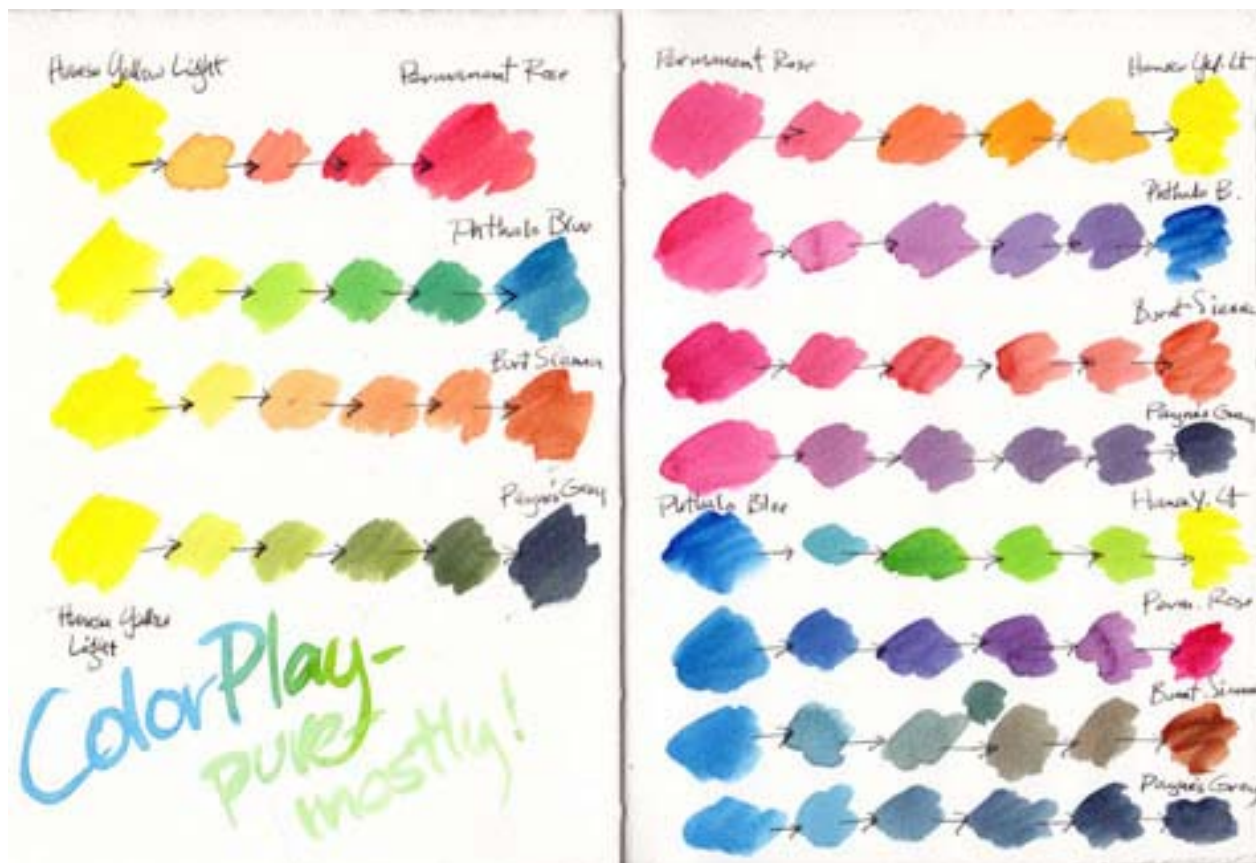 Hansa Yellow Light
Permanent Rose
Phthalo Blue
Burt Sienna
Payne's Gray
Hansa Yellow
Light
ColorPlay-
pure
mostly!
Permanent Rose
Hansa Yel. Lt
Phthalo B.
Burnt Sienna
Payne's Gray
Phthalo Blue
Hansa Y. Lt
Perm. Rose
Burnt Sienna
Payne's Gray